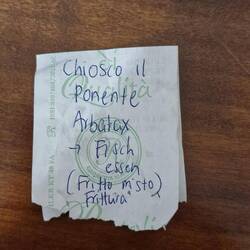 Qualità
Chiosco il
Ponente
Arbatax
→ Fisch
essen
(Fritto misto)
Frittura